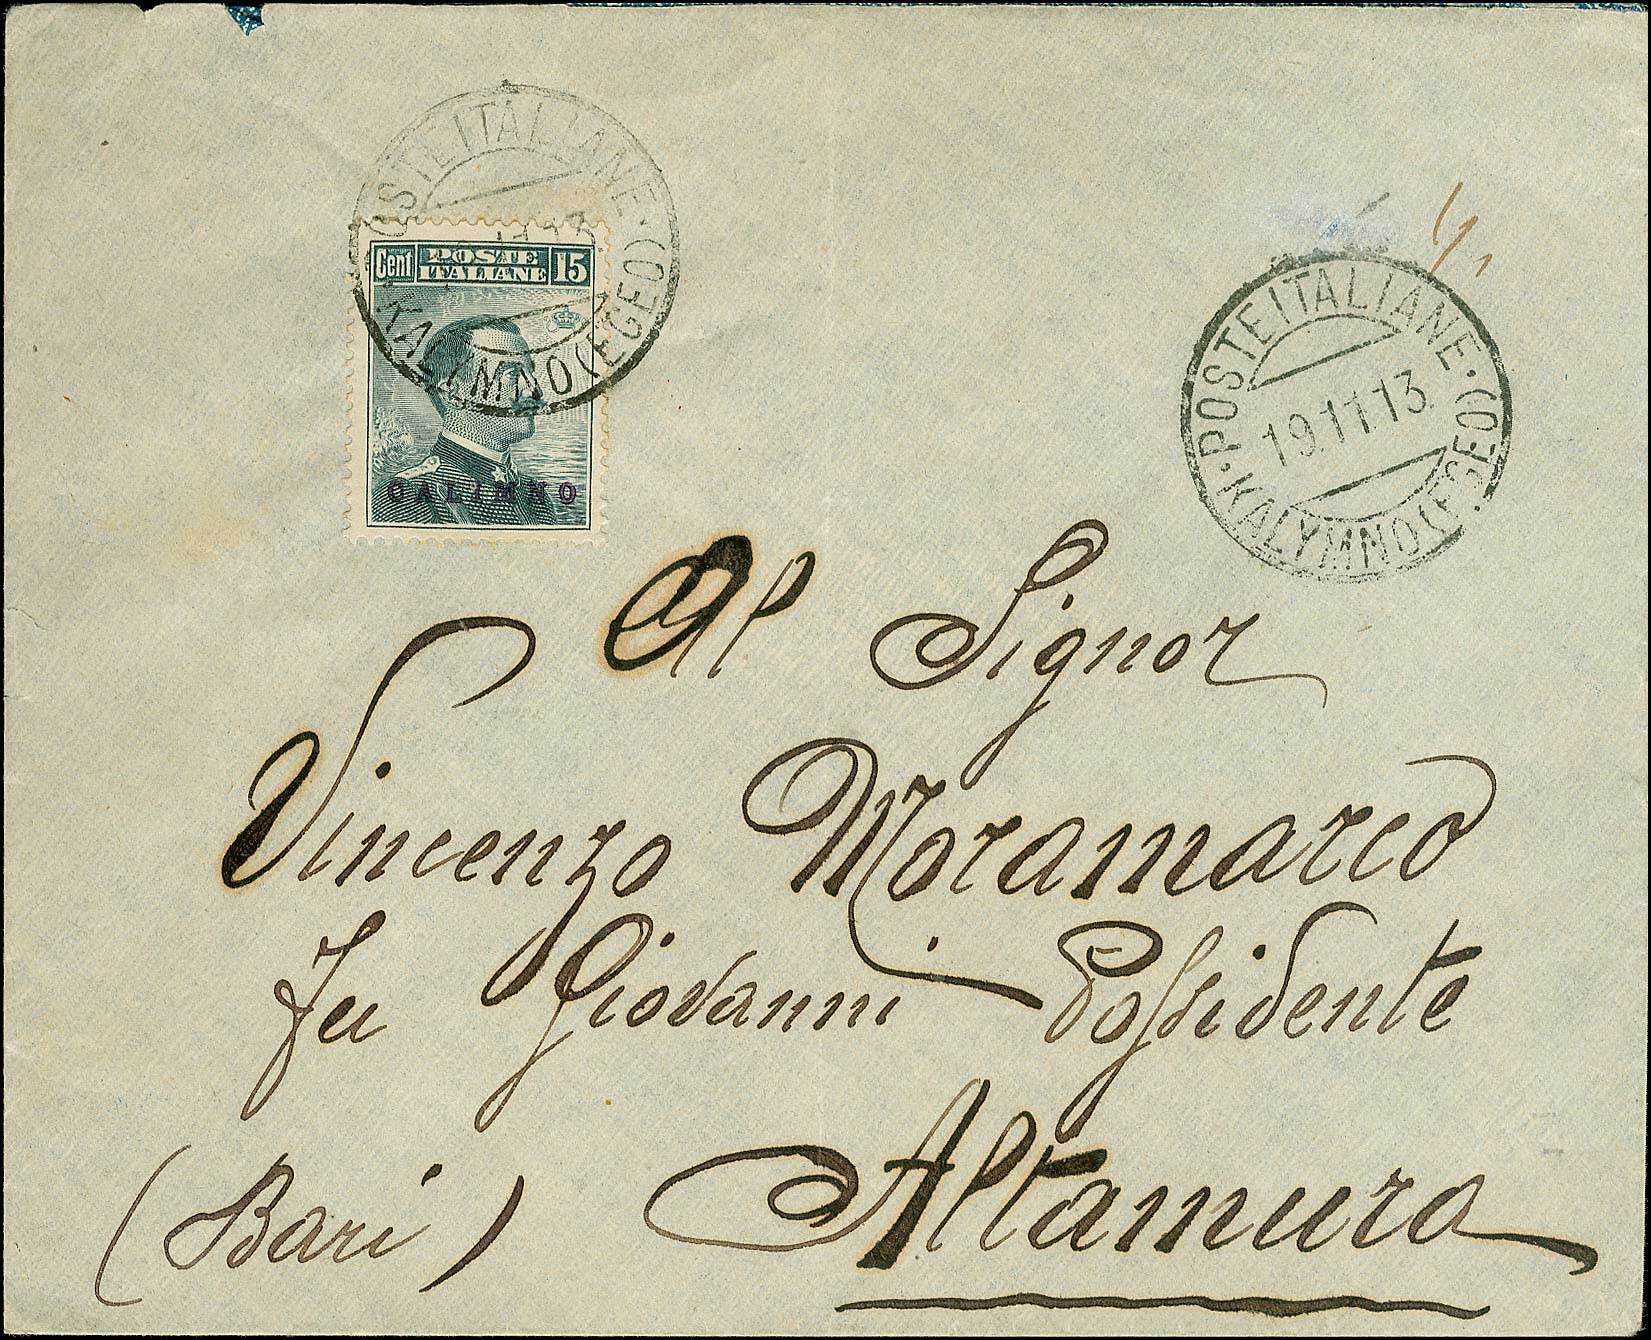 POSTE ITALIANE
KALIMNO (EGEO)
Cent POSTE ITALIANE 15
CALIMNO
POSTE ITALIANE
19.11.13
KALYMNO (EGEO)
Al Signor
Vincenzo Moramarco
fu Giovanni Possidente
(Bari) Altamura